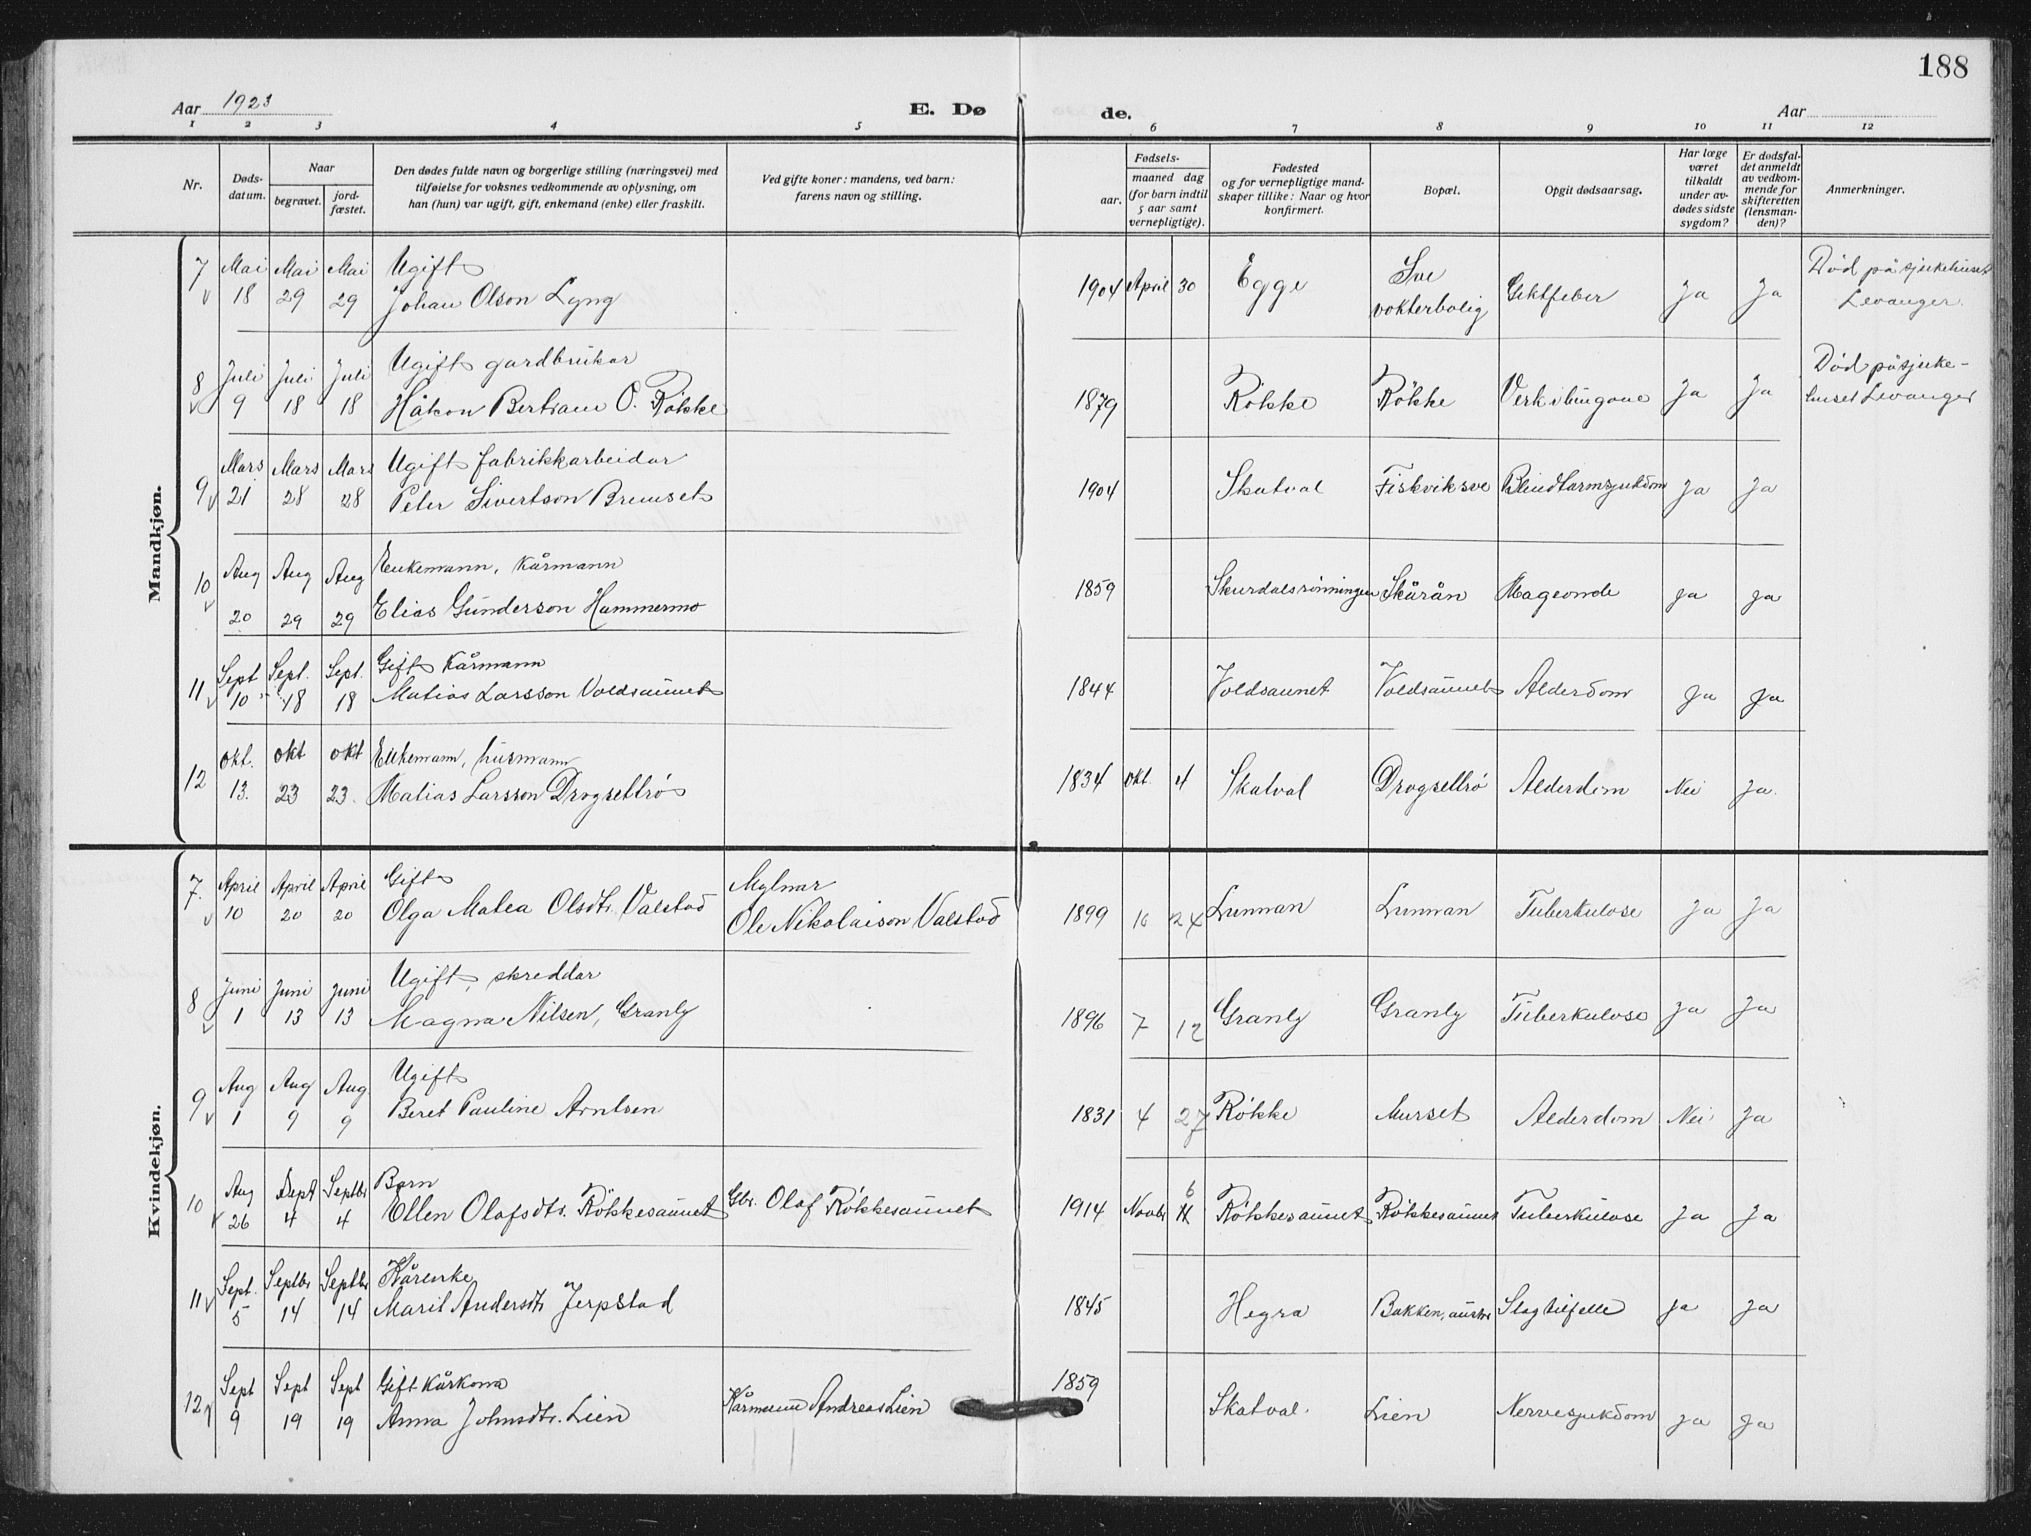 188
Aar 1923
E. Dø
de.
Aar
1 2 3 4 5 6 7 8 9 10 11 12
Nr.
Døds-
datum.
Naar
begravet.
jord-
fæstet.
Den dødes fulde navn og borgerlige stilling (næringsvei) med
tilføielse for voksnes vedkommende av oplysning, om
han (hun) var ugift, gift, enkemand (enke) eller fraskilt.
Ved gifte koner: mandens, ved barn:
farens navn og stilling.
Fødsels-
aar.
maaned dag
(for barn indtil
5 aar samt
vernepligtige).
Fødested
og for vernepligtige mand-
skaper tillike: Naar og hvor
konfirmert.
Bopæl.
Opgit dødsaarsag.
Har læge
været
tilkaldt
under av-
dødes sidste
sygdom?
Er dødsfal-
det anmeldt
av vedkom-
mende for
skifteretten
(lensman-
den)?
Anmerkninger.
Mandkjøn.
7 Mai Mai Mai Ugift Sve Død på sjukehuset
18 29 29 Johan Olson Lyng 1904 April 30 Egge vokterbolig Giktfeber Ja Ja Levanger
8 Juli Juli Juli Ugift gardbrukar Død på sjuke-
9 18 18 Håkon Bertram O. Røkke 1879 Røkke Røkke Verk i bugane Ja Ja huset Levanger
9 Mars Mars Mars Ugift fabrikkarbeidar
21 28 28 Peter Sivertson Bremset 1904 Skatval Fiskviksve Blindtarmsjukdom Ja Ja
10 Aug Aug Aug Enkemann, Kårmann
20 29 29 Elias Gunderson Hammermo 1859 Skurdalsrønningen Skårån Mageonde Ja Ja
11 Sept Sept. Sept. Gift Kårmann
10 18 18 Matias Larsson Voldsaunet 1844 Voldsaunet Voldsaunet Alderdom Ja Ja
12 Okt. Okt Okt Enkemann, husmann
13. 23 23. Matias Larsson Drogsetbrø 1834 Okt. 4 Skatval Drogsetbrø Alderdom Nei Ja.
Kvindekjøn.
7. April April April Gift Mylnar
10 20 20 Olga Malea Olsdtr. Valstad Ole Nikolaison Valstad 1899 10 24 Lunnan Lunnan Tuberkulose Ja Ja
8 Juni Juni Juni Ugift, skreddar
1 13 13 Magna Nilsen, Granly 1896 7 12 Granly Granly Tuberkulose Ja Ja
9 Aug Aug Aug. Ugift
1 9 9 Beret Pauline Arntsen 1831 4 27 Røkke Murset Alderdom Nei Ja
10 Aug Sept Septbr Barn 6
26 4 4 Ellen Olafsdtr. Røkkesaunet Gbr. Olaf Røkkesaunet 1914 Novbr Røkkesaunet Røkkesaunet Tuberkulose Ja Ja
11 Sept. Septbr Septbr Kårenke
5 14 14 Marit Andersdtr Jerpstad 1845 Hegra Bakken, austre Slagtilfelle Ja Ja
12 Sept Sept Sept Gift kårkona
9 19 19 Anna Johnsdtr. Lien Kårmann Andreas Lien 1859 Skatval. Lien Nervesjukdom Ja Ja